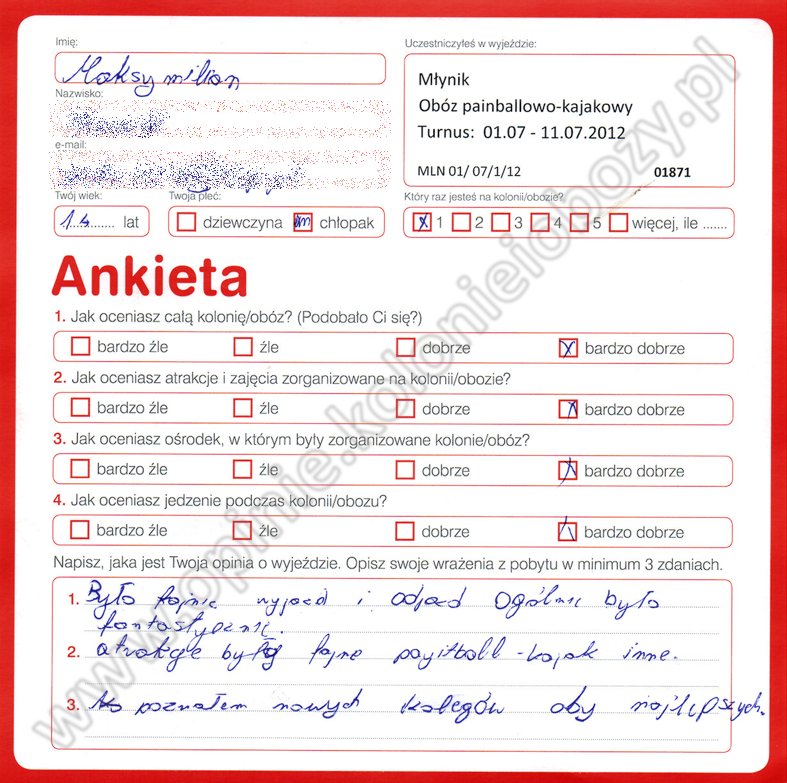 Imię:
Maksymilian
Nazwisko:
e-mail:
Twój wiek:
14 lat
Twoja płeć:
dziewczyna chłopak
Uczestniczyłeś w wyjeździe:
Młynik
Obóz painballowo-kajakowy
Turnus: 01.07 - 11.07.2012
MLN 01/ 07/1/12 01871
Który raz jesteś na kolonii/obozie?
1 2 3 4 5 więcej, ile .......
Ankieta
1. Jak oceniasz całą kolonię/obóz? (Podobało Ci się?)
bardzo źle źle dobrze bardzo dobrze
2. Jak oceniasz atrakcje i zajęcia zorganizowane na kolonii/obozie?
bardzo źle źle dobrze bardzo dobrze
3. Jak oceniasz ośrodek, w którym były zorganizowane kolonie/obóz?
bardzo źle źle dobrze bardzo dobrze
4. Jak oceniasz jedzenie podczas kolonii/obozu?
bardzo źle źle dobrze bardzo dobrze
Napisz, jaka jest Twoja opinia o wyjeździe. Opisz swoje wrażenia z pobytu w minimum 3 zdaniach.
1. Było fajnie wyjazd i odjazd Ogólnie było
fantastycznie.
2. atrakcje były fajne payitball - kajak inne.
3. poznałem nowych kolegów oby najlepszych.
www.opinie.kolonieiobozy.pl